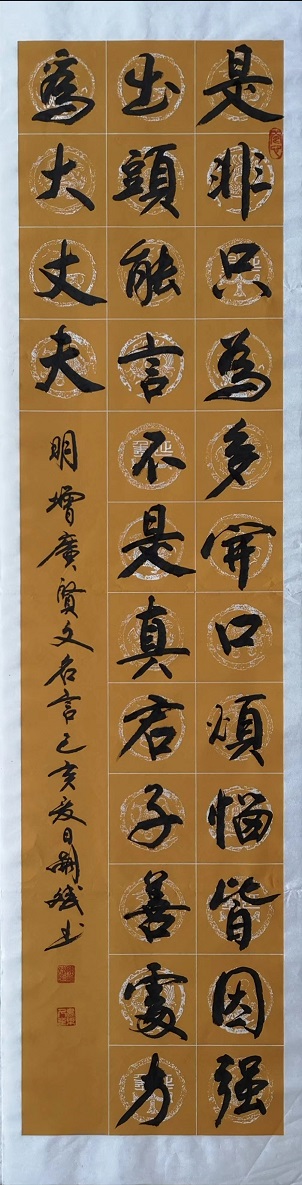 是非只為多開口煩惱皆因强
出頭能言不是真君子善處方
為大丈夫
明增廣賢文名言己亥夏日 书